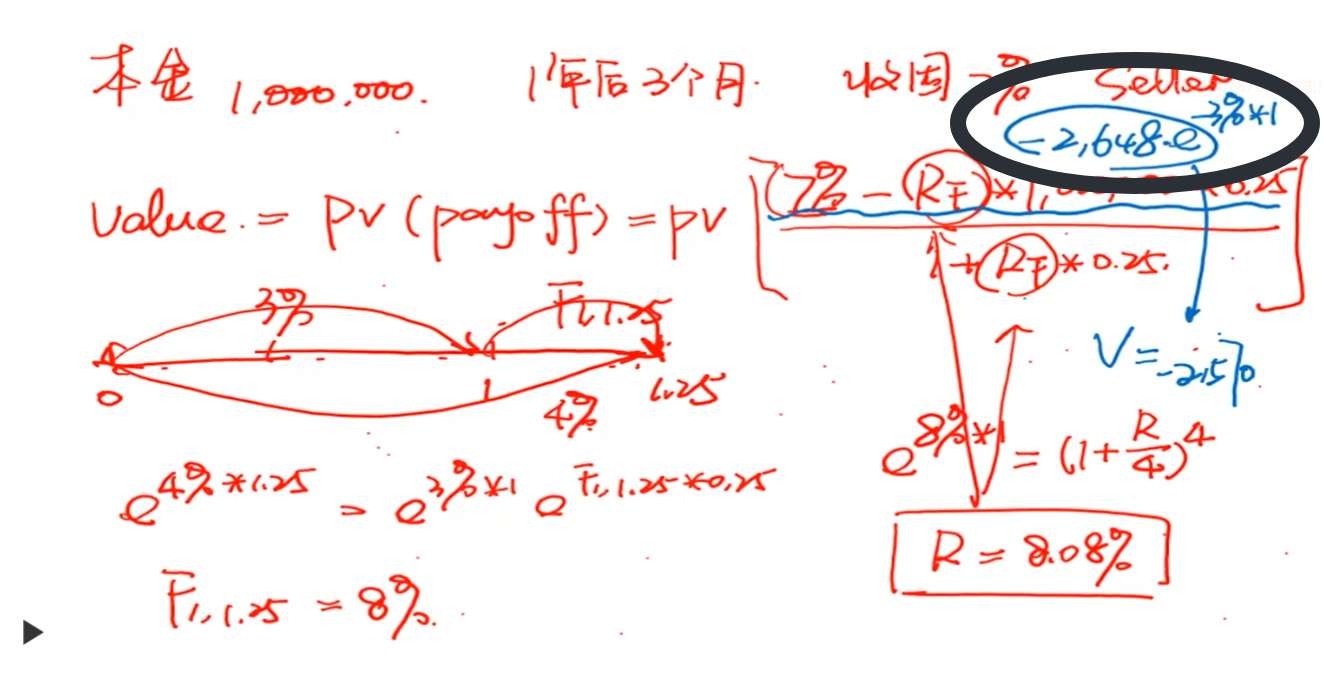 本金 1,000,000. 1年后3个月. 收固 7% Seller
-2,648·e^-3%*1
Value. = PV (payoff) = PV [(7% - RF) * 1,000,000 * 0.25]
1 + RF * 0.25.
3% F1,1.25
0 1 1.25
4%
V = -2570
e^8%*1 = (1 + R/4)^4
e^4%*1.25 = e^3%*1 e^F1,1.25*0.25
R = 8.08%
F1,1.25 = 8%.